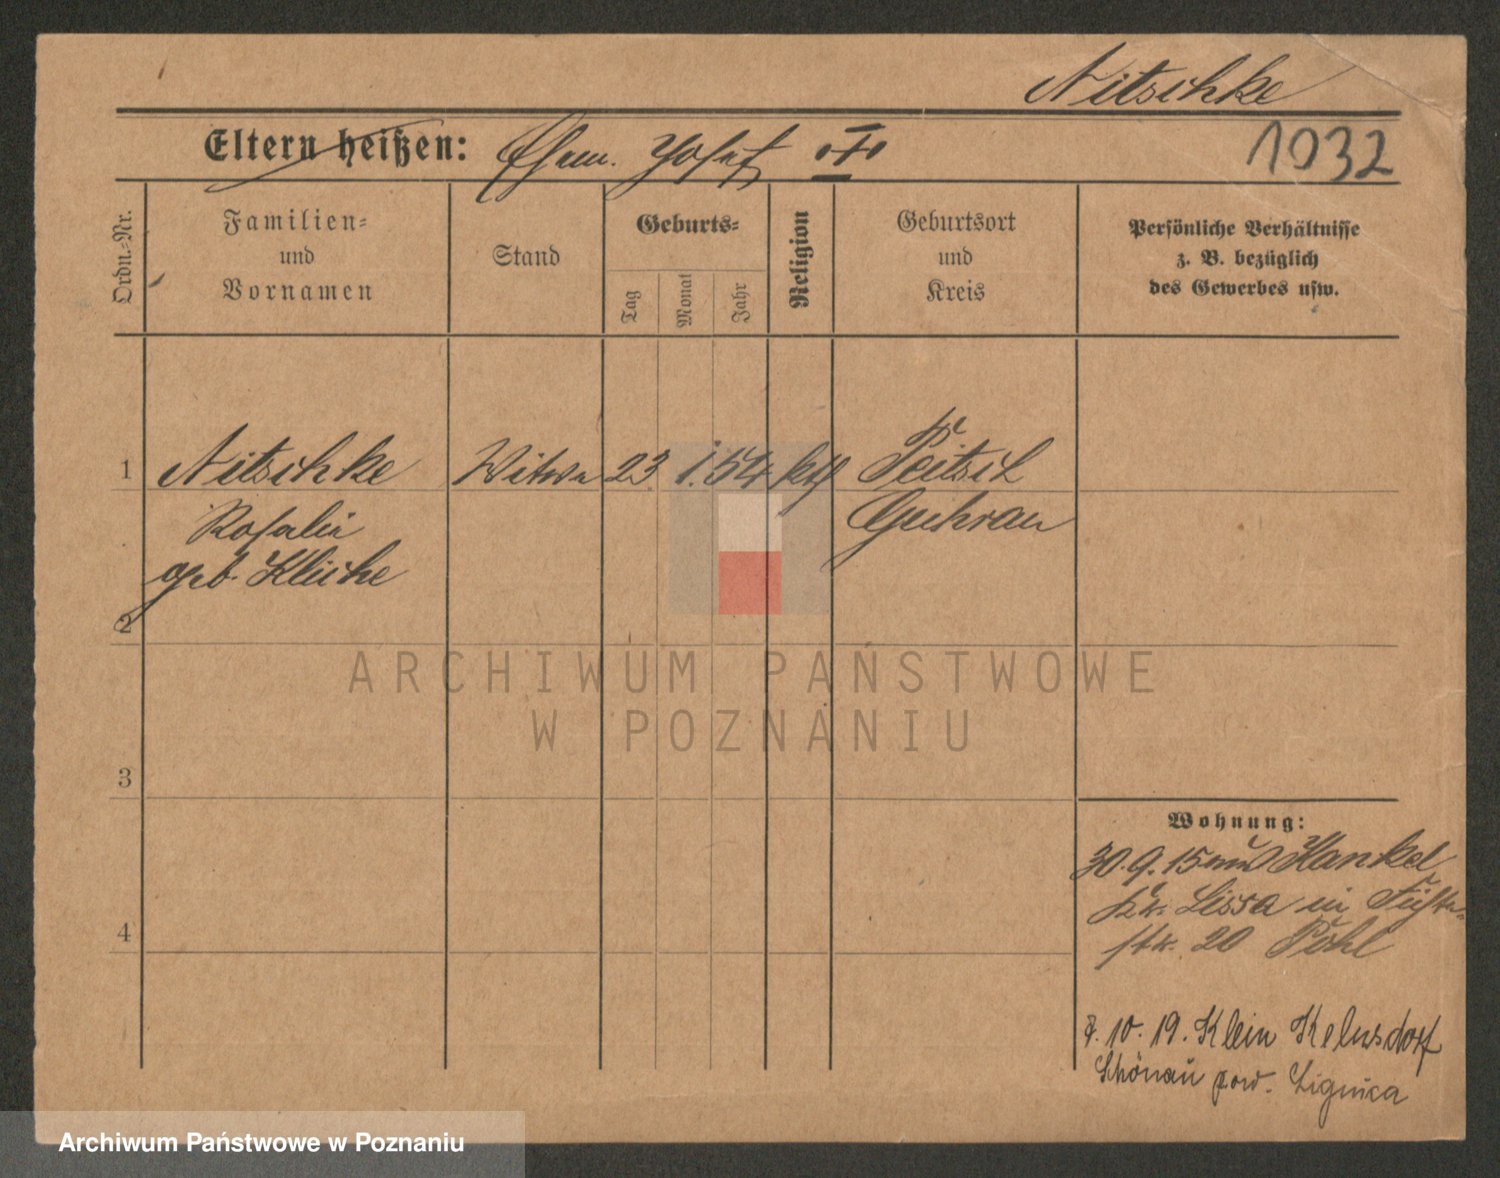 Nitschke
Eltern heißen: Ehem. Josef
1032
Ordn.-Nr.
Familien-
und
Vornamen
Stand
Geburts-
Tag
Monat
Jahr
Religion
Geburtsort
und
Kreis
Persönliche Verhältnisse
z. B. bezüglich
des Gewerbes usw.
1 Nitschke Witwe 23 1. 54 kth
Rosalie Guhrau
geb. Klische
2
ARCHIWUM PAŃSTWOWE
W POZNANIU
3
Wohnung:
30.9.15 Hankel
Kr. Lissa in
4
str. 20 Pohl
10. 19. Klein Helmsdorf
Schönau pow. Lignica
Archiwum Państwowe w Poznaniu